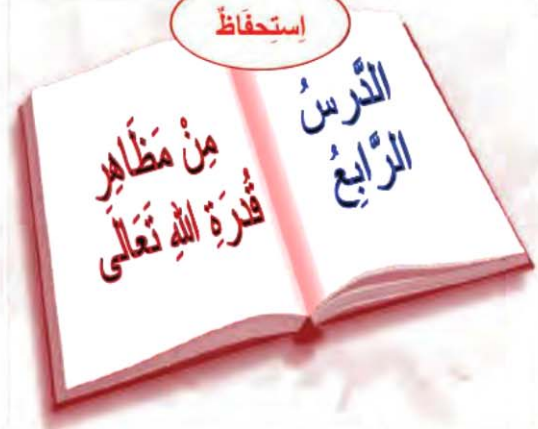 اِستِحفَاظٌ
الدَّرسُ
الرَّابِعُ
مِنْ مَظَاهِرِ
قُدرَةِ اللهِ تَعَالَى